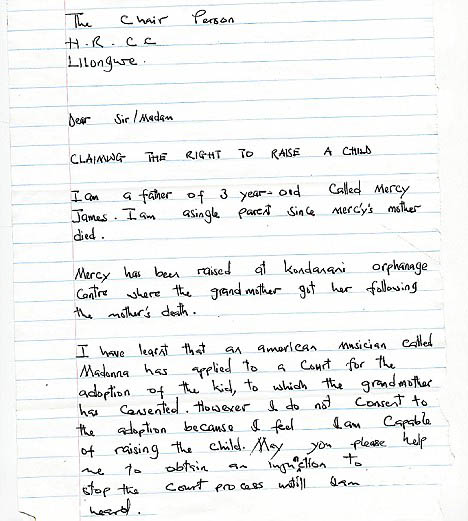 The Chair Person
H.R.C.C
Lilongwe.
Dear Sir/Madam
CLAIMING THE RIGHT TO RAISE A CHILD
I am a father of 3 year-old Called Mercy
James. I am asingle parent since Mercy's mother
died.
Mercy has been raised at kondanani orphanage
Centre where the grandmother got her following
the mother's death.
I have learnt that an american musician called
Madonna has applied to a Court for the
adoption of the kid, to which the grandmother
has Consented. However I do not Consent to
the adoption because I feel I am Capable
of raising the child. May you please help
me to obtain an injunction to
stop the Court process untill I am
heard.